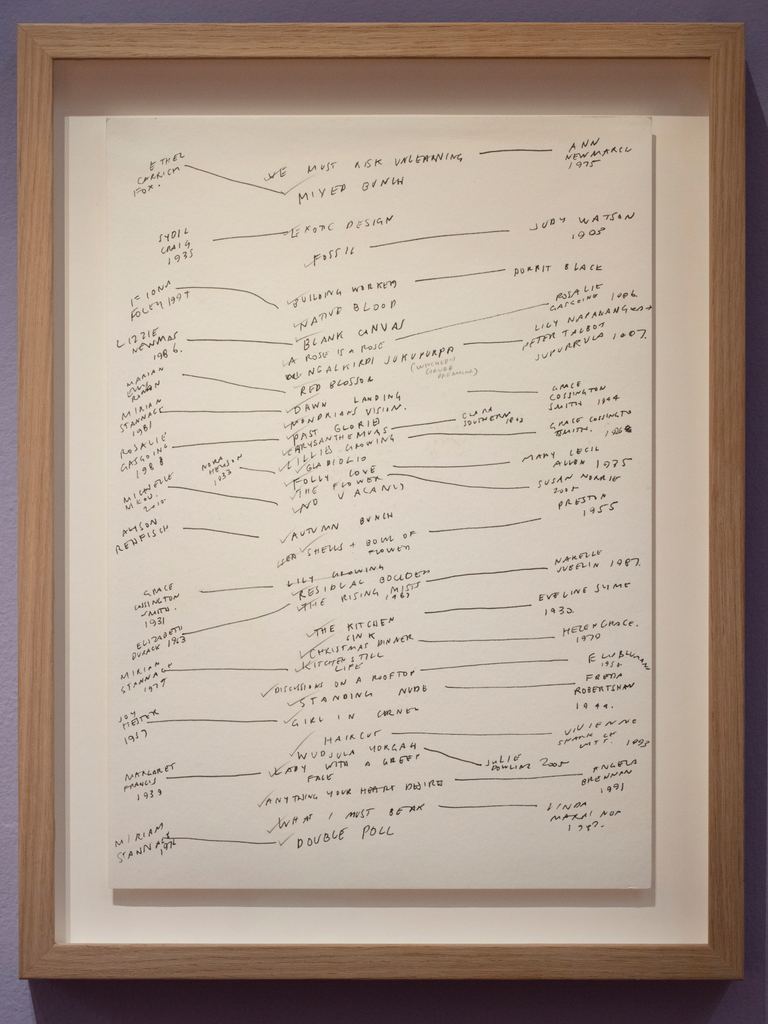 ETHEL
CARRICK
FOX.
WE MUST RISK UNLEARNING
ANN
NEWMARCH
1975
MIXED BUNCH
SYBIL
CRAIG
1935
EXOTIC DESIGN
JUDY WATSON
FOSSIL
FIONA
FOLEY 1994
BUILDING WORKERS
DORRIT BLACK
NATIVE BLOOD
LIZZIE
NEWMAN
1986.
BLANK CANVAS
ROSALIE
GASCOIGNE 1986.
A ROSE IS A ROSE
LILY NAPANANGKA +
PETER TALBOT
JUPURRULA 1987.
NGALKIRDI JUKUPURPA
MARIAN
ELLIS
ROWAN
RED BLOSSOM
MIRIAM
STANNAGE
1981
DAWN LANDING
GRACE
COSSINGTON
SMITH 1944
MONDRIANS VISION.
ROSALIE
GASCOIGNE
1988
PAST GLORIES
CLARA
SOUTHERN
CHRYSANTHEMUMS
GRACE COSSINGTON
SMITH.
LILLIES GROWING
NORA
HEYSEN
1933
GLADIOLIO
MARY CECIL
ALLEN 1975
FOLLY LOVE
MICHELLE
THE FLOWER
SUSAN NORRIE
2005
NO VACANCY
ALYSON
AUTUMN BUNCH
PRESTON
1955
SEA SHELLS + BOWL OF
FLOWER
GRACE
COSSINGTON
SMITH.
1931
LILY GROWING
NARELLE
JUBELIN 1987.
RESIDUAL BOULDER
THE RISING MISTS
1963
ELIZABETH
DURACK 1963
THE KITCHEN
SINK
EVELINE SYME
1930.
CHRISTMAS DINNER
HELEN GRACE.
1979
MIRIAM
STANNAGE
1979
KITCHEN STILL
LIFE
DISCUSSIONS ON A ROOFTOP
STANDING NUDE
FREDA
ROBERTSHAW
1944.
JOY
HESTER
1957
GIRL IN CORNER
HAIRCUT
VIVIENNE
SHARK LE
WITT. 1993
WUDJULA YORGAH
JULIE
DOWLING 2005
MARGARET
FRANCIS
1939
LADY WITH A GREEN
FACE
ANYTHING YOUR HEART DESIRE
ANGELA
BRENNAN
1991
WHAT I MUST BEAR
LINDA
MARRINON
1982.
MIRIAM
STANNAGE
1976
DOUBLE POLL